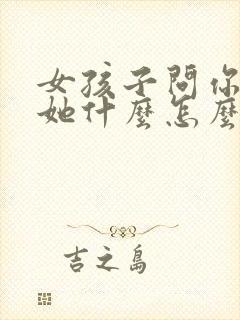 女孩子問你
她什麼怎麼
吉之島